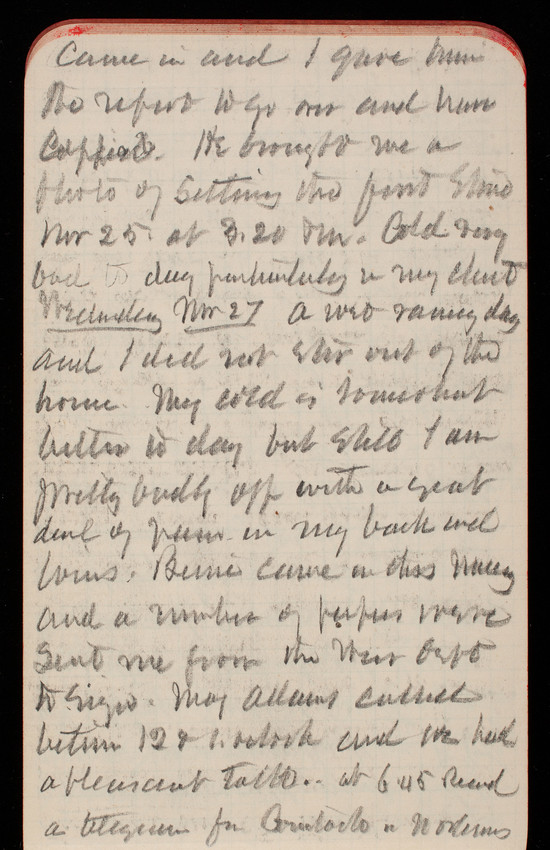 Came in and I gave him
the report to go over and have
Copied. He brought me a
photo of setting the first Stone
Nov 25 at 3.20 Pm. Cold very
bad to day particularly in my chest
Wednesday Nov 27 A wet rainy day
and I did not Stir out of the
house. My cold is somewhat
better to day but Still I am
pretty badly off with a great
deal of pain in my back and
loins. Bernie came in this
and a number of papers were
Sent me from the War Dept
to Sign. Maj Adams called
between 12 & 1. oclock and we had
a pleasant talk.. at 6 45 Recvd
a telegram